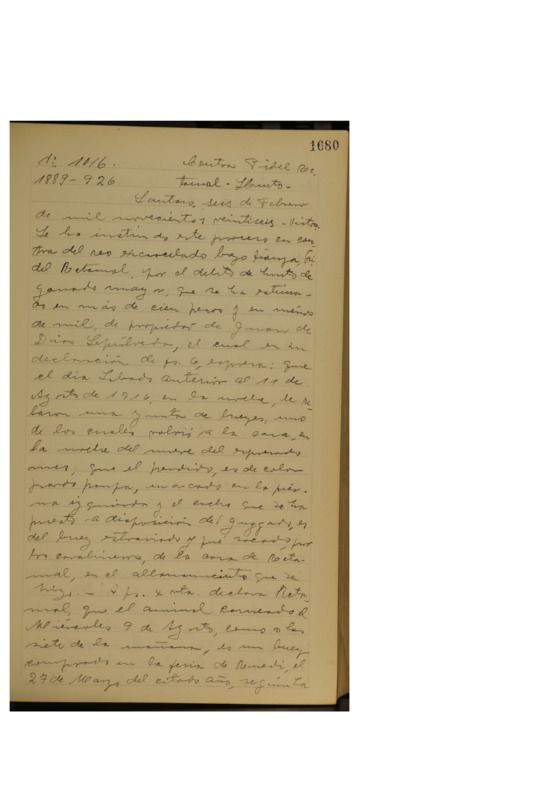 1680
N: 1016. Contra Fidel Re-
1889-926 tamal - Hurto-
Lautaro, seis de Febrero
de mil novecientos veintiseis - Vistos
Se ha instruido este proceso en con-
tra del reo excarcelado bajo fianza, Fi-
del Retamal, por el delito de hurto de
ganado mayor, que se ha estima-
do en más de cien pesos y en ménos
de mil, de propiedad de Juan de
Dios Sepúlveda, el cual en su
declaración de fs. 6, expresa: que
el dia Sábado anterior al 11 de
Agosto de 1916, en la noche, le ro-
baron una yunta de bueyes, uno
de los cuales volvió a la casa, en
la noche del nueve del expresado
mes; que el perdido, es de color
pardo pampa, marcado en la pier-
na izquierda y el cacho que se ha
puesto a disposición del Juzgado, es
del buey estraviado y fué sacado, por
los carabineros, de la casa de Reta-
mal, en el allanamiento que se
hizo. - A fs. 4 vta. declara Reta-
mal, que el animal carneado el
Miércoles 9 de Agosto, como a las
siete de la mañana, es un buey
comprado en la feria de el
27 de Marzo del citado año, según la